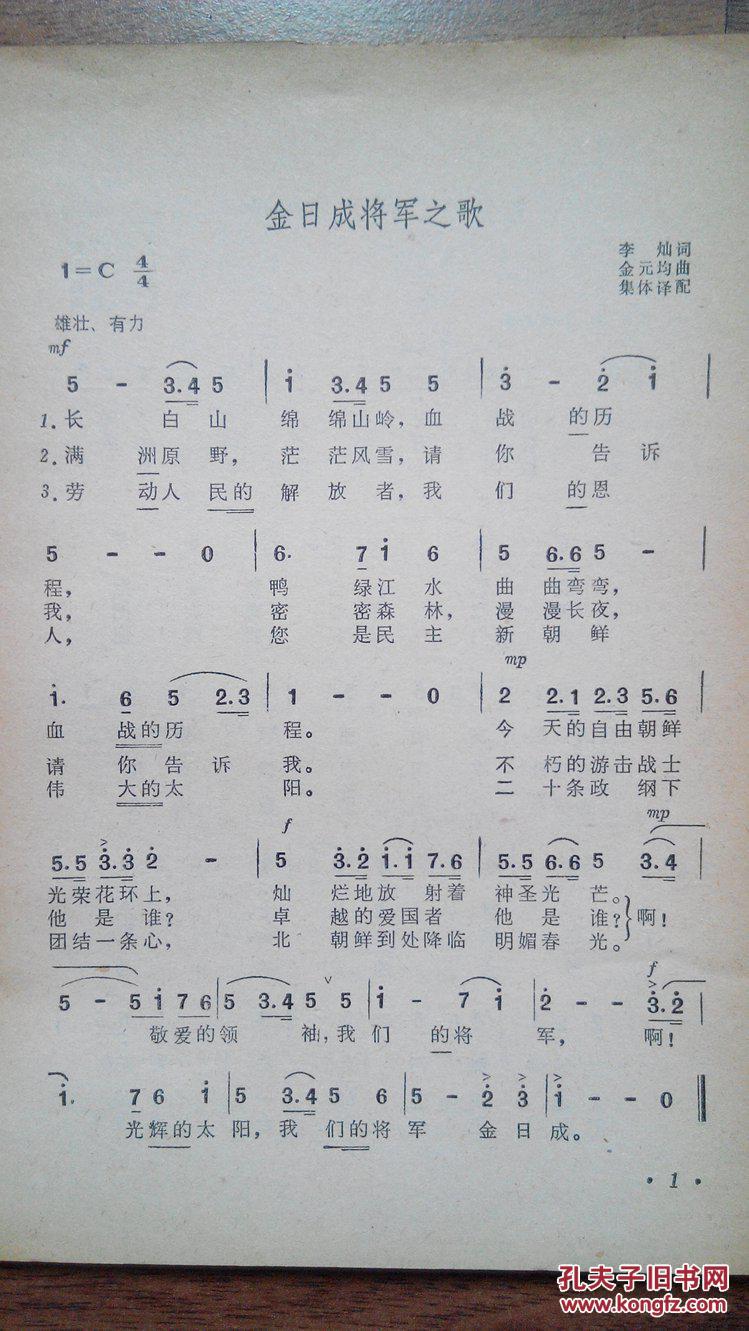 金日成将军之歌
1=C 4/4
李 灿词
金元均曲
集体译配
雄壮、有力
mf
5 - 3.4 5 | i 3.4 5 5 | 3 - 2 i |
1.长 白山 绵 绵山岭,血 战 的历
2.满 洲原 野, 茫 茫风雪,请 你 告 诉
3.劳 动人 民的 解 放 者,我 们 的恩
5 - - 0 | 6. 7 i 6 | 5 6.6 5 - |
程, 鸭 绿江 水 曲 曲弯弯,
我, 密 密森 林, 漫 漫长夜,
人, 您 是民 主 新 朝 鲜
mp
i. 6 5 2.3 | 1 - - 0 | 2 2.1 2.3 5.6 |
血 战的历 程。 今 天的自由朝鲜
请 你告诉 我。 不 朽的游击战士
伟 大的太 阳。 二 十条政 纲下
f mp
5.5 3.3 2 - | 5 3.2 i.i 7.6 | 5.5 6.6 5 3.4 |
光荣花环上, 灿 烂地放 射着 神圣光 芒。
他 是 谁? 卓 越的爱国者 他 是 谁? 啊!
团结一条心, 北 朝鲜到处降临 明媚春 光。
f
5 - 5 i 7 6 | 5 3.4 5 5 | i - 7 i | 2 - - 3.2 |
敬爱的领 袖,我 们 的将 军, 啊!
i. 7 6 i | 5 3.4 5 6 | 5 - 2 3 | i - - 0 ‖
光辉的太 阳,我 们的将 军 金 日 成。
· 1 ·
孔夫子旧书网
www.kongfz.com